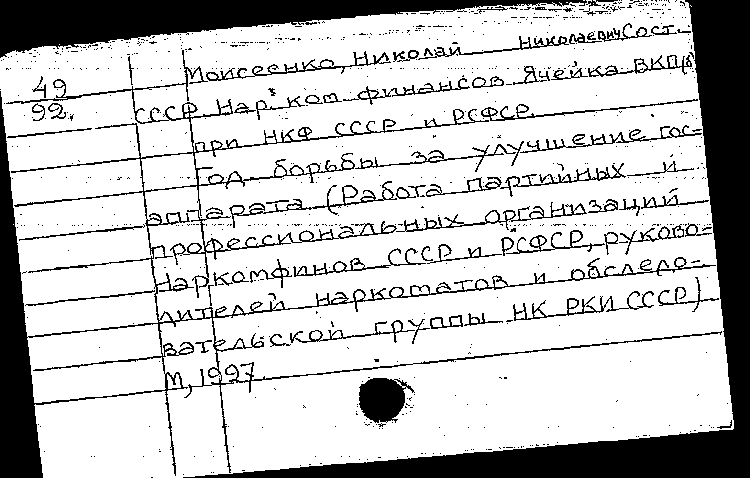 49
92.
Моисеенко, Николай Николаевич Сост.
СССР. Нар. ком. финансов. Ячейка ВКП(б)
при НКФ СССР и РСФСР.
Год борьбы за улучшение гос-
аппарата (Работа партийных и
профессиональных организаций
Наркомфинов СССР и РСФСР, руково-
дителей наркоматов и обследо-
вательской группы НК РКИ СССР)
М, 1997.